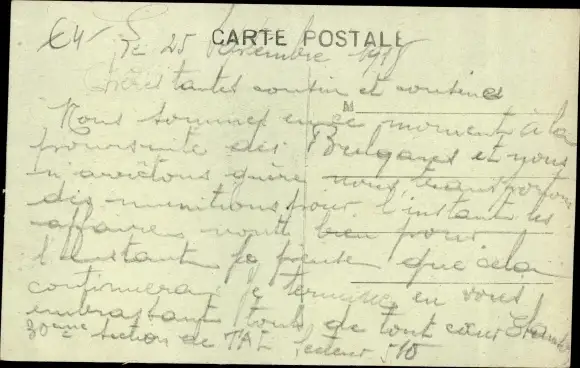 CARTE POSTALE
Le 25 septembre 1918
Chères tantes cousin et cousines
Nous sommes en ce moment à la
poursuite des Bulgares et nous
n'arrêtons guère nous transportons
des munitions pour l'instant les
affaires vont bien pour
l'instant je pense que cela
continuera je termine en vous
embrassant tous de tout cœur
30ème section de TAL secteur 510